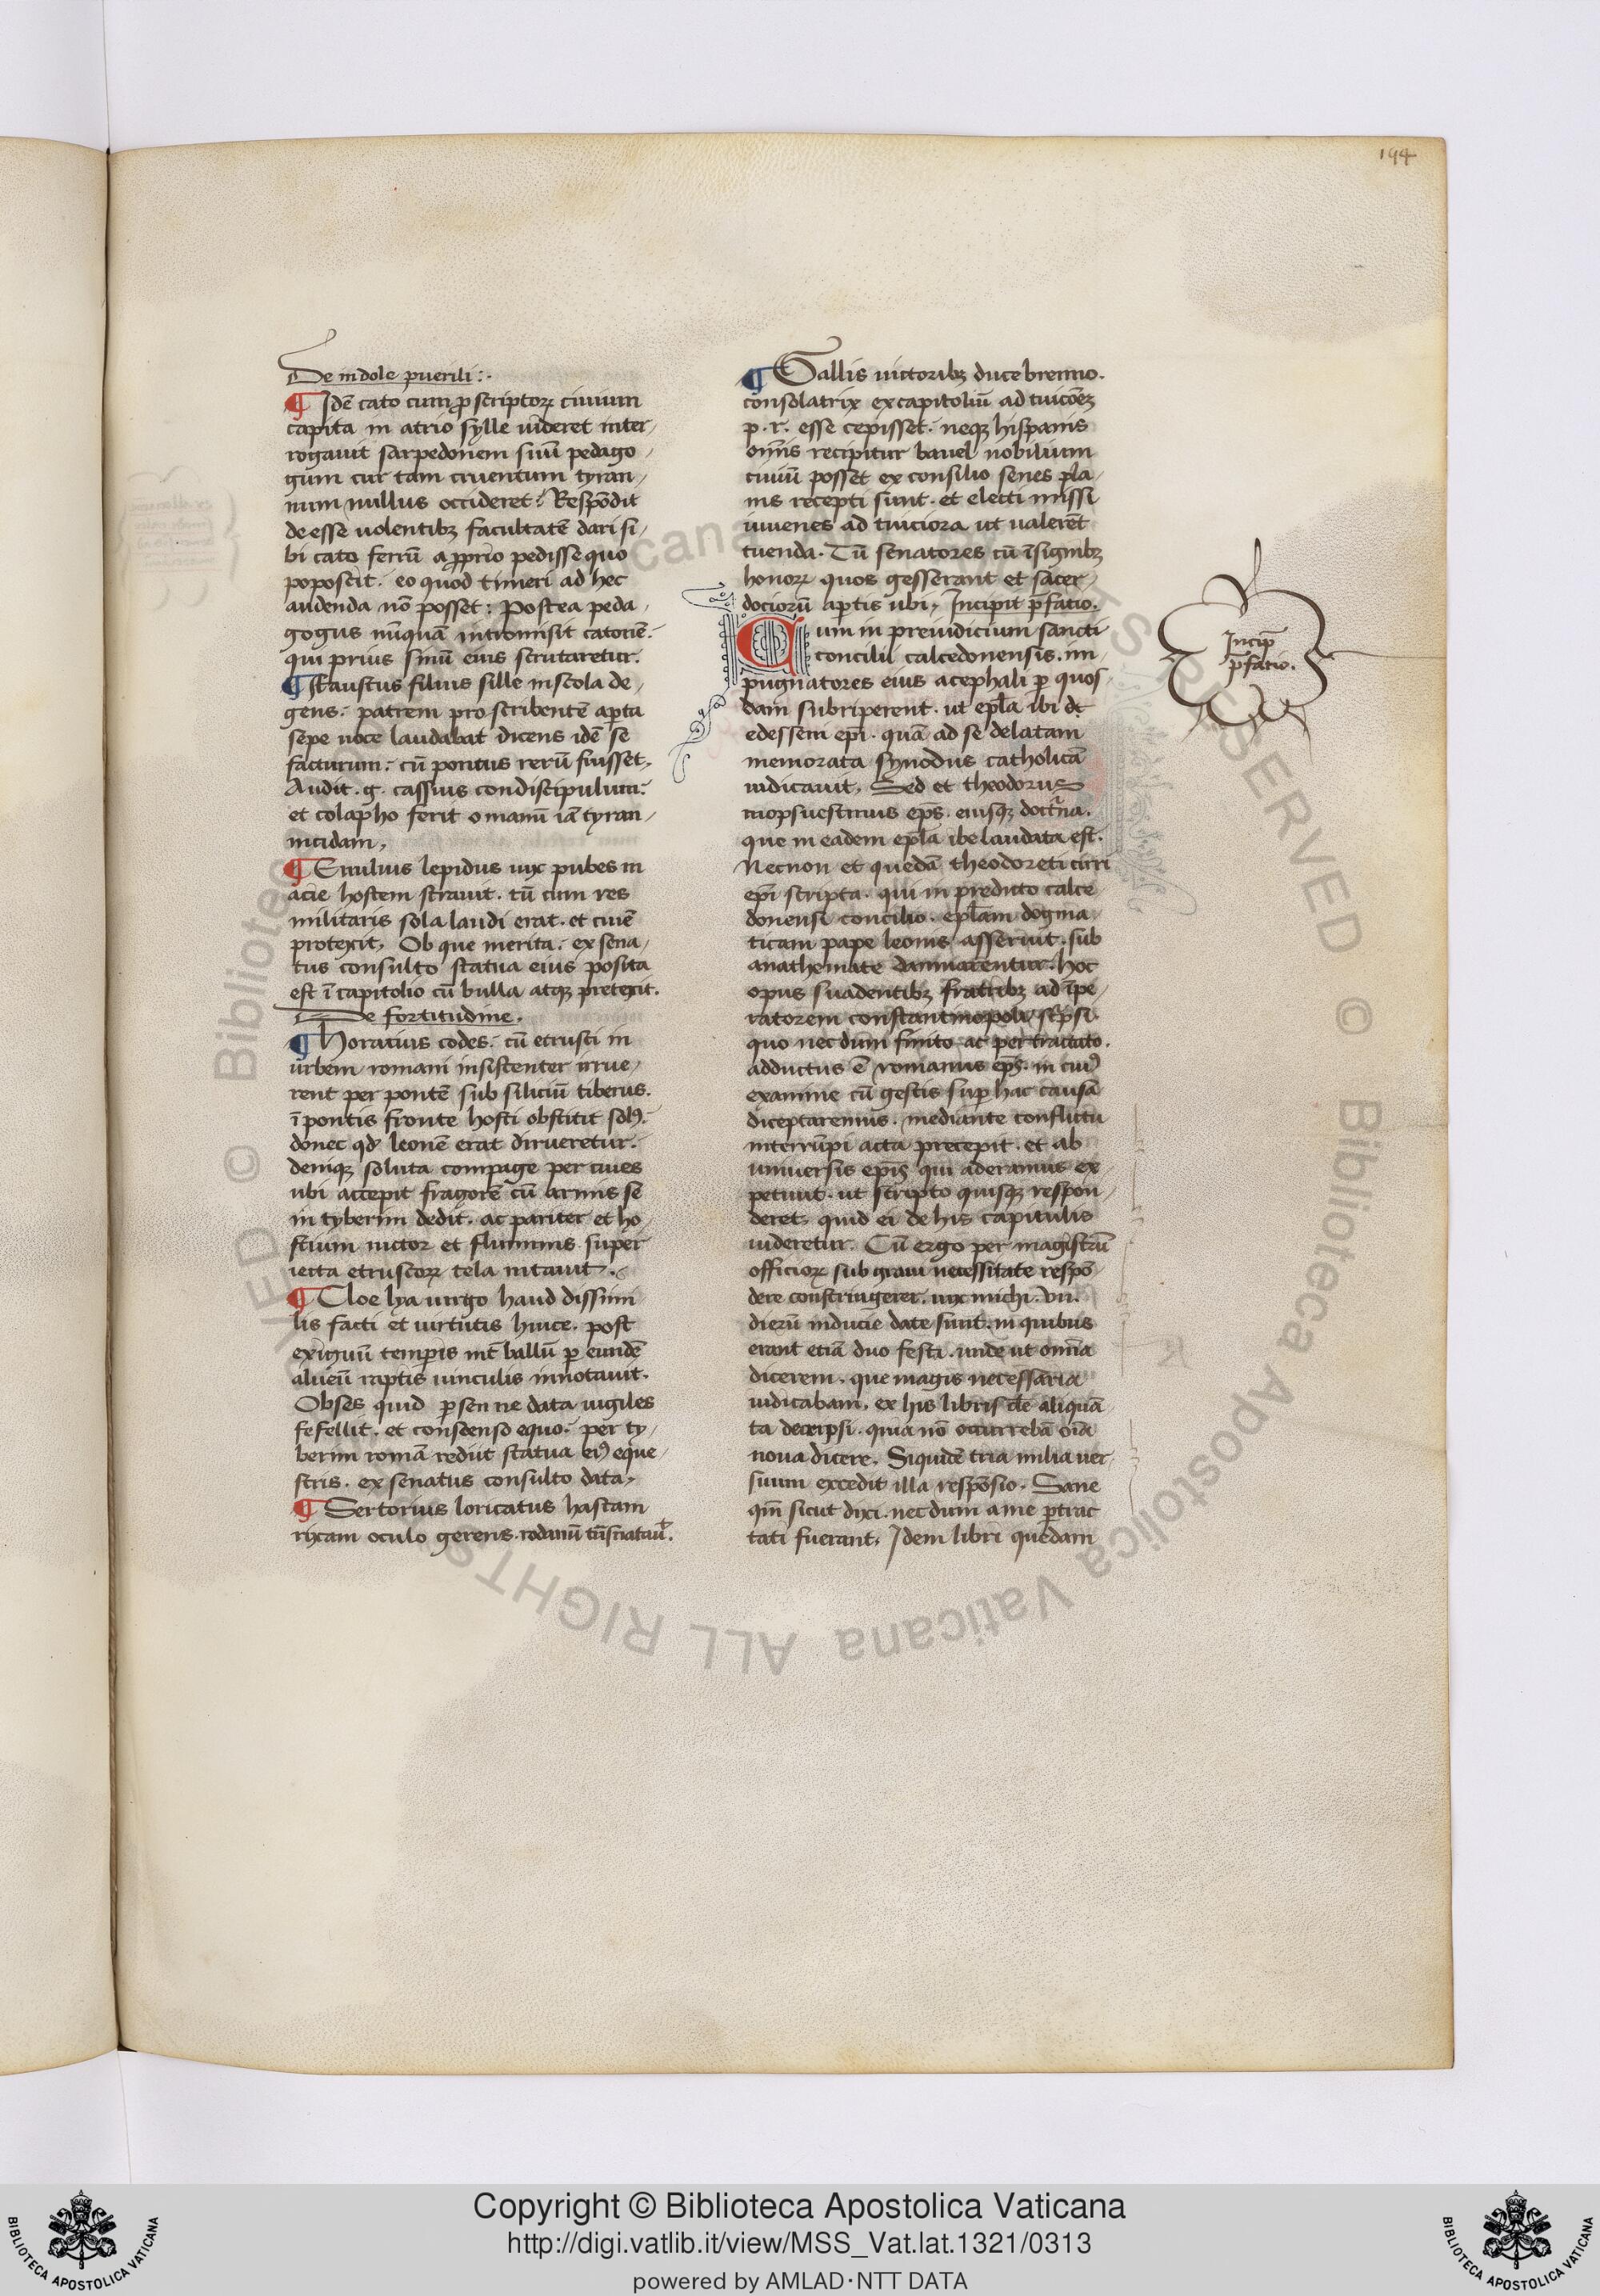 194
De indole puerili:.
¶ Idē cato cum ꝓscriptoꝝ ciuium
capita in atrio sylle uideret inter-
rogauit sarpedonem suū pedago-
gum cur tam cruentum tyran-
num nullus occideret? Respōdit
deesse uolentibꝫ facultatē dari si-
bi cato ferrū a ꝓprio pedissequo
poposcit. eo quod timeri ad hec
audenda nō posset: Postea peda-
gogus nūquā intromisit catonē.
qui prius sinū eius scrutaretur.
¶ Faustus filius sille in scola de-
gens. patrem proscribentē aꝑta
sepe uoce laudabat dicens idē se
facturum. cū potitus rerū fuisset.
Audit .g. cassius condiscipulum.
et colapho ferit o manū iā tyran-
nicidam.
¶ Emilius lepidus uix pubes in
acie hostem strauit. tū cum res
militaris sola laudi erat. et ciuē
protexit. Ob que merita. ex sena-
tus consulto statua eius posita
est ī capitolio cū bulla atqꝫ pretexit.
De fortitudine.
¶ Horatius codes. cū etrusci in
urbem romani insistenter irrue-
rent per pontē subsiliciū tiberus.
ī pontis fronte hosti obstitit solꝰ.
donec qd leonē erat dirueretur.
deniqꝫ soluta compage per ciues
ubi accepit fragorē cū armis se
in tyberim dedit. ac pariter et ho-
stium uictor et fluminis super
iecta etruscoꝝ tela uitauit.
¶ Cloelya uirgo haud dissimi
lis facti et uirtutis huice. post
exiguū tempis int̄uallū ꝑ eundē
alueū raptis uinculis innotauit.
Obses quid porsenne data uigiles
fefellit. et consdenso equo. per ty-
berim romā rediit statua eiꝰ eque-
stris. ex senatus consulto data.
¶ Sertorius loricatus hastam
rixam oculo gerens. rodanū trāsnatauit.
¶ Gallis uictoribꝫ duce brenno.
consolatrix ex capitoliū ad tuicōeꝫ
p. r. esse cepisset. neqꝫ hispanis
omīs recipitur bauel nobilium
ciuiū posset ex consilio senes pla-
nis recepti sunt. et electi missi
iuuenes ad tuiciora ut ualerēt
tuenda. Tū senatores cū īsignibꝫ
honoꝝ quos gesserant et sacer-
dociorū aꝑtis ubi. Incipit p̄fatio.
Cum in preiudicium sancti
concilii calcedonensis. im-
pugnatores eius acephali ꝑ quos-
dam subriperent. ut epl̄a ibi dt
edessem ep̄i. quā ad se delatam
memorata synodus catholicā
iudicauit. Sed et theodorus
mopsuestinus ep̄s. eiusqꝫ doctr̄na.
que in eadem epl̄a ibe laudata est.
Necnon et quedā theodoreti cirri
ep̄i scripta. qui in predicto calce-
donensi concilio. epl̄am dogma-
ticam pape leonis asseruit. sub
anathemate damnarentur. hoc
opus suadentibꝫ fratribꝫ ad īpe-
ratorem constantinopoli sc̄psi.
quo necdum finito ac pertractato.
adductus ē romanus ep̄s. in cuiꝰ
examine cū gestis suꝑ hac causā
diceptaremus. mediante conflictu
interrūpi acta precepit. et ab
uniuersis ep̄is qui aderamus ex-
petiuit. ut scripto quisqꝫ respon-
deret. quid ei de his capitulis
uideretur. Cū ergo per magistrū
officioꝝ sub graui necessitate respō-
dere constringerer. uix michi .vii.
dierū inducie date sunt. in quibus
erant etiā duo festi. unde ut omīa
dicerem. que magis necessaria
iudicabam. ex his libris de aliquā
ta decerpsi. quia nō occurrebā oīa
noua dicere. Siquidē tria milia uer-
suum excedit illa respōsio. Sane
qm̄ sicut dixi. necdum a me ꝑtrac
tati fuerant. Idem libri quedam
Incip̄
p̄fatio.
© Biblioteca Apostolica Vaticana ALL RIGHTS RESERVED
Copyright © Biblioteca Apostolica Vaticana
http://digi.vatlib.it/view/MSS_Vat.lat.1321/0313
powered by AMLAD·NTT DATA
BIBLIOTECA APOSTOLICA VATICANA
BIBLIOTECA APOSTOLICA VATICANA